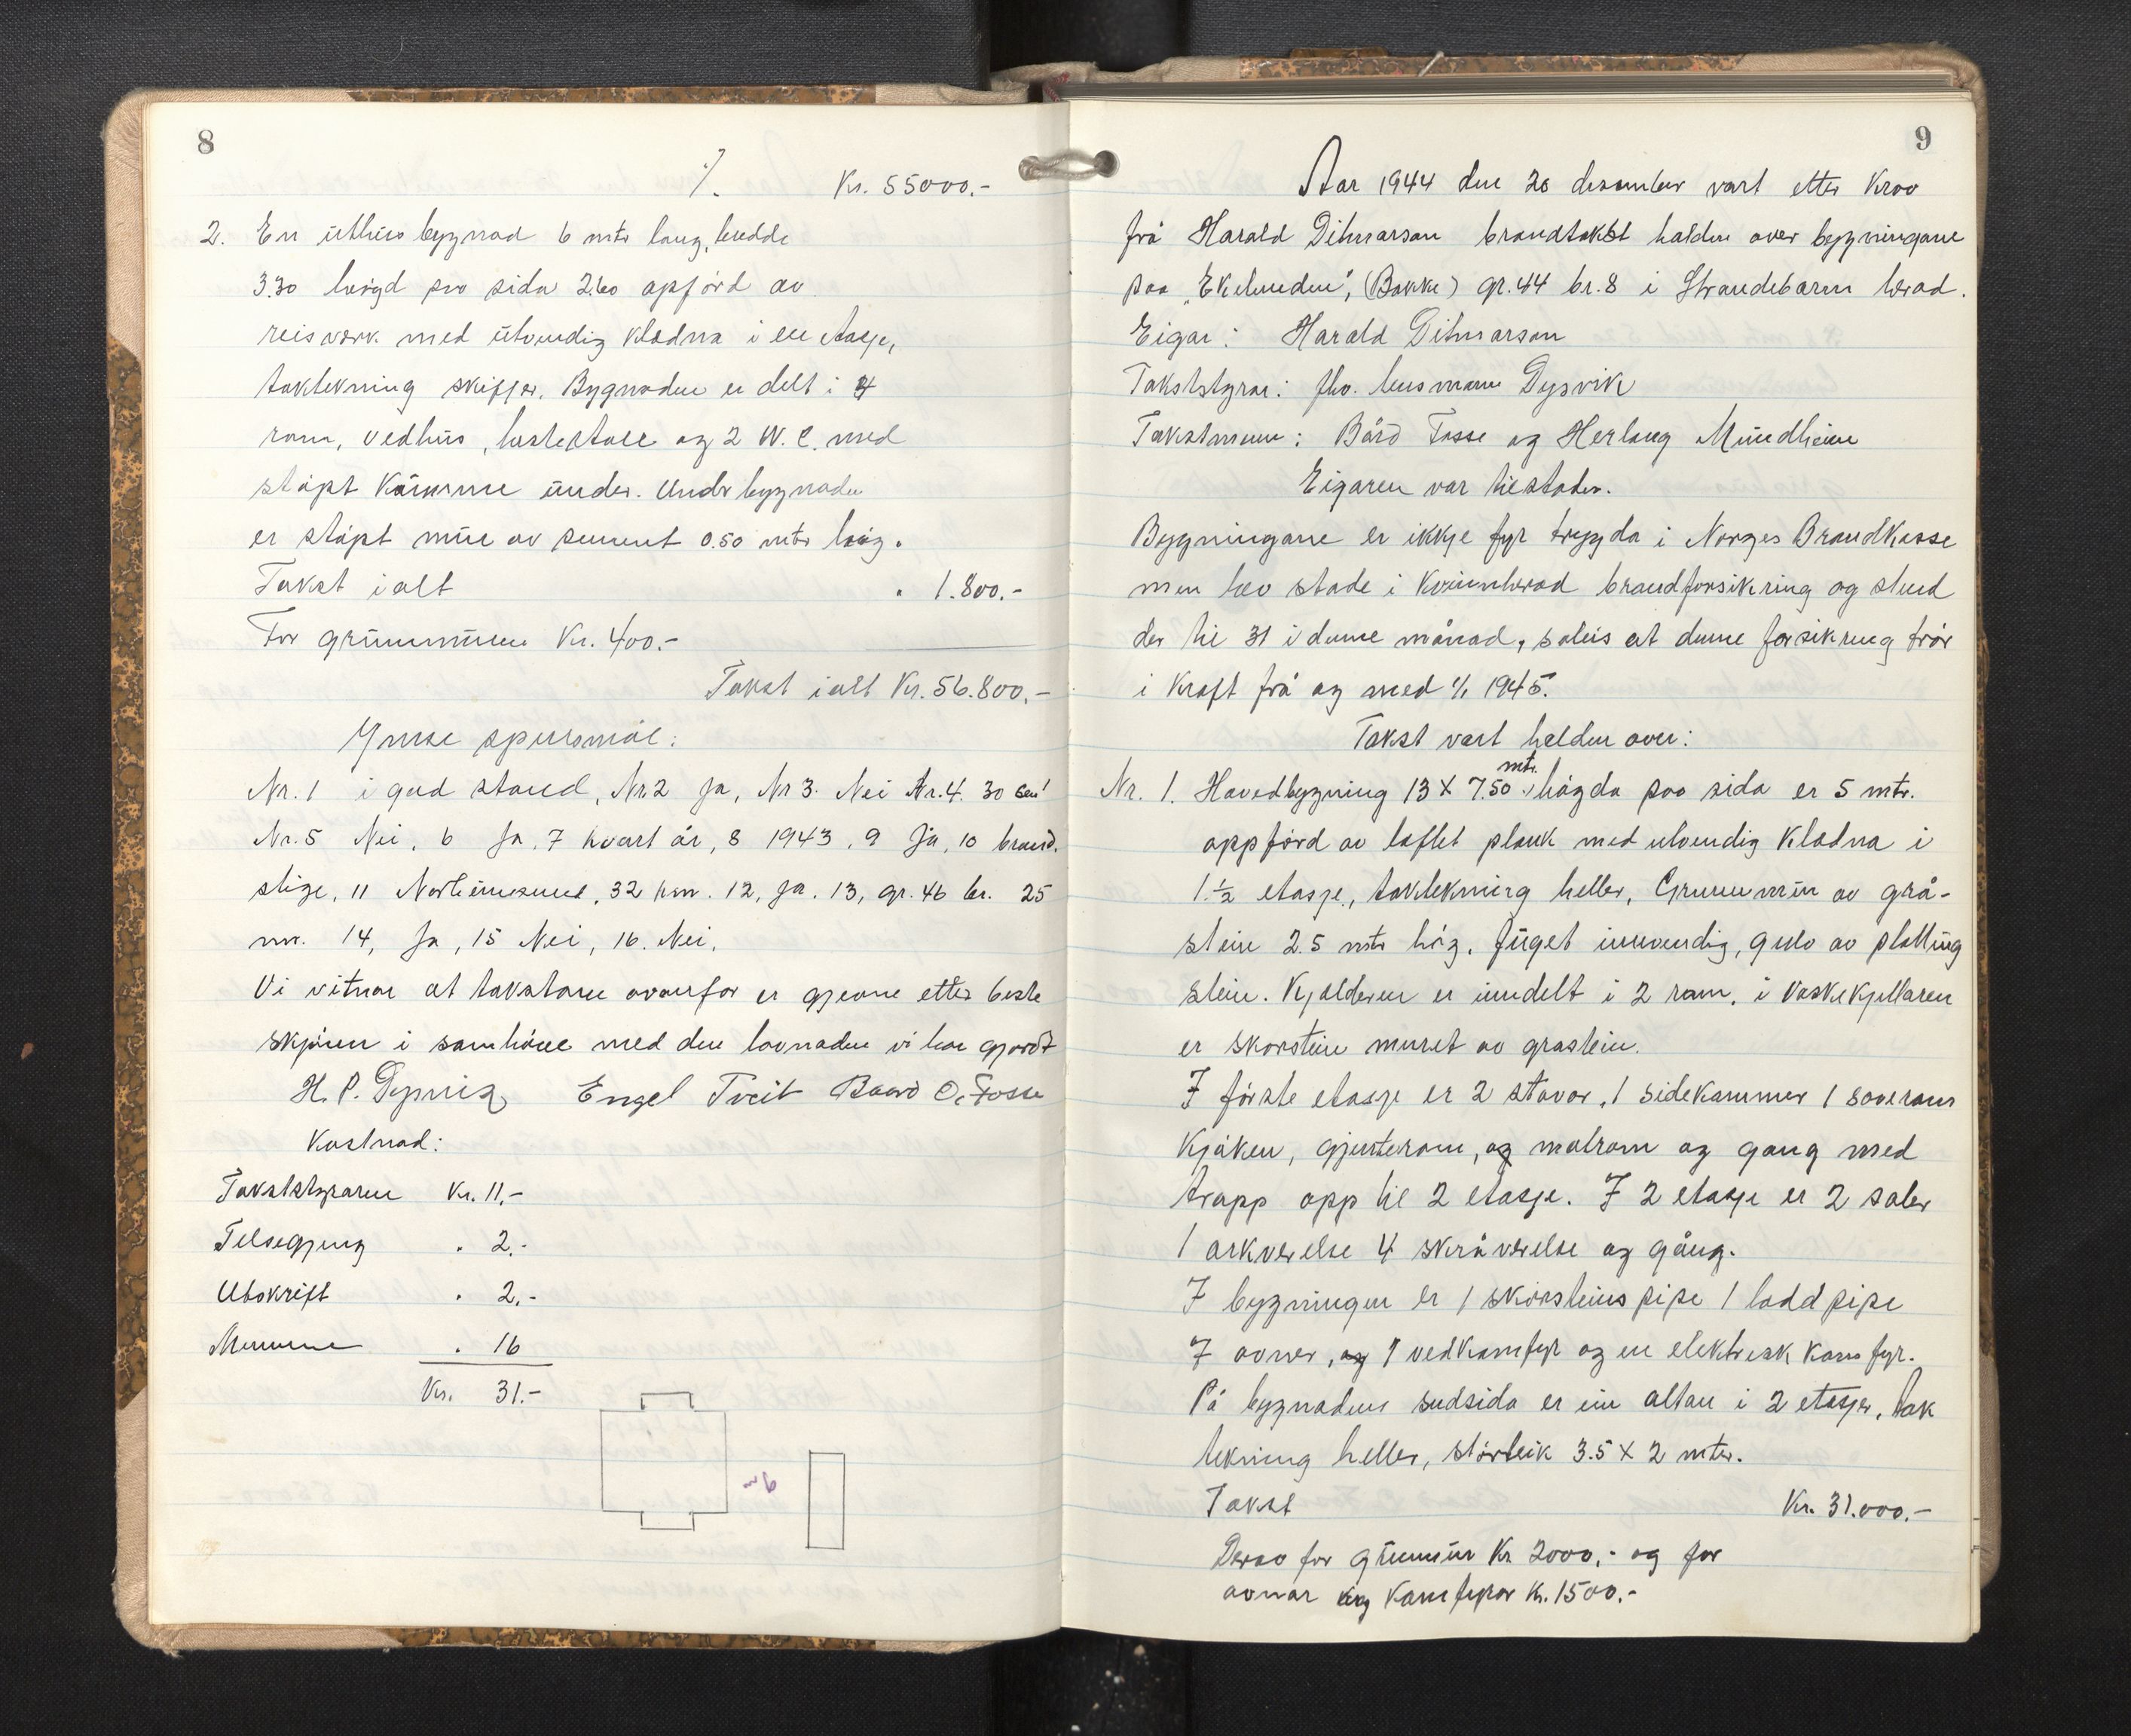 8
·/. Kr. 55000.-
2. En uthus bygnad 6 mtr lang, bredde
3.30 høigd paa sida 2.60 opførd av
reisverk med utvendig kledna i en etasje,
taktekning skiffer. Bygnaden er delt i 4
rom, vedhus, hestestall og 2 W.C. med
støpt kummme under. Under bygnaden
er støpt mur av sement 0.50 mtr høig.
Takst ialt " 1.800.-
For grunnmuren Kr. 400.-
Takst ialt Kr. 56.800.-
Ymse spursmål:
Nr. 1 i god stand, Nr 2 Ja, Nr 3. Nei Nr. 4. 30 cm
Nr. 5 Nei, 6 Ja, 7 kvart år, 8 1943, 9 Ja, 10 brand.
stige, 11 Norheimsund, 32 km. 12, Ja. 13, gr. 46 br. 25
14, Ja, 15 Nei, 16. Nei.
Vi vitnar at takstane ovanfor er gjevne etter beste
skjønn i samhøve med den lovnaden vi har gjordt
H. P. Dysvik Engel Tveit Baard O. Fosse
Kostnad:
Takststyraren Kr. 11,-
Tilsegjing " 2.-
Utskrift " 2,-
Mennene " 16
Kr. 31.-
6 m
9
Aar 1944 den 20 desember vart etter krav
frå Harald Ditmarson brandtakst halden over bygningane
paa "Ekelunden", (Bakke) gr. 44 br. 8 i Strandebarm herad.
Eigar: Harald Ditmarson
Takststyrar: fho. lensmann Dysvik
Takstmenn: Bård Fosse og Herlaug Mundheim
Eigaren var tilstades.
Bygningane er ikkje fyr trygda i Norges Brandkasse
men hev stade i Kvinnherad brandforsikring og stend
der til 31 i denne månad, saleis at denne forsikring trør
i kraft frå og med 1/1 1945.
Takst vart halden over:
Nr. 1. Hovedbygning 13 X 7.50 mtr. høgda paa sida er 5 mtr.
oppførd av loftet plank med utvendig kledna i
1 1/2 etasje, taktekning heller, Grunnmur av grå-
stein 2.5 mtr høg. fuget innvendig, gulv av platting
stein. Kjelderen er inndelt i 2 rom, i vaskekjellaren
er skorstein muret av grastein.
I første etasje er 2 stover, 1 sidekammer 1 soverom
kjøken, gjesterom, og matrom og gang med
trapp opp til 2 etasje. I 2 etasje er 2 saler
1 arkverelse 4 skråverelse og gång.
I bygningen er 1 skorsteins pipe 1 lodd pipe
7 ovner, og 1 vedkomfyr og en elektrisk komfyr.
På bygnadens sudsida er ein altan i 2 etasjer, tak
tekning heller, størleik 3.5 X 2 mter.
Takst Kr. 31.000.-
Derav for grunmur Kr 2000,- og for
ovnar og komfyrar kr. 1500.-